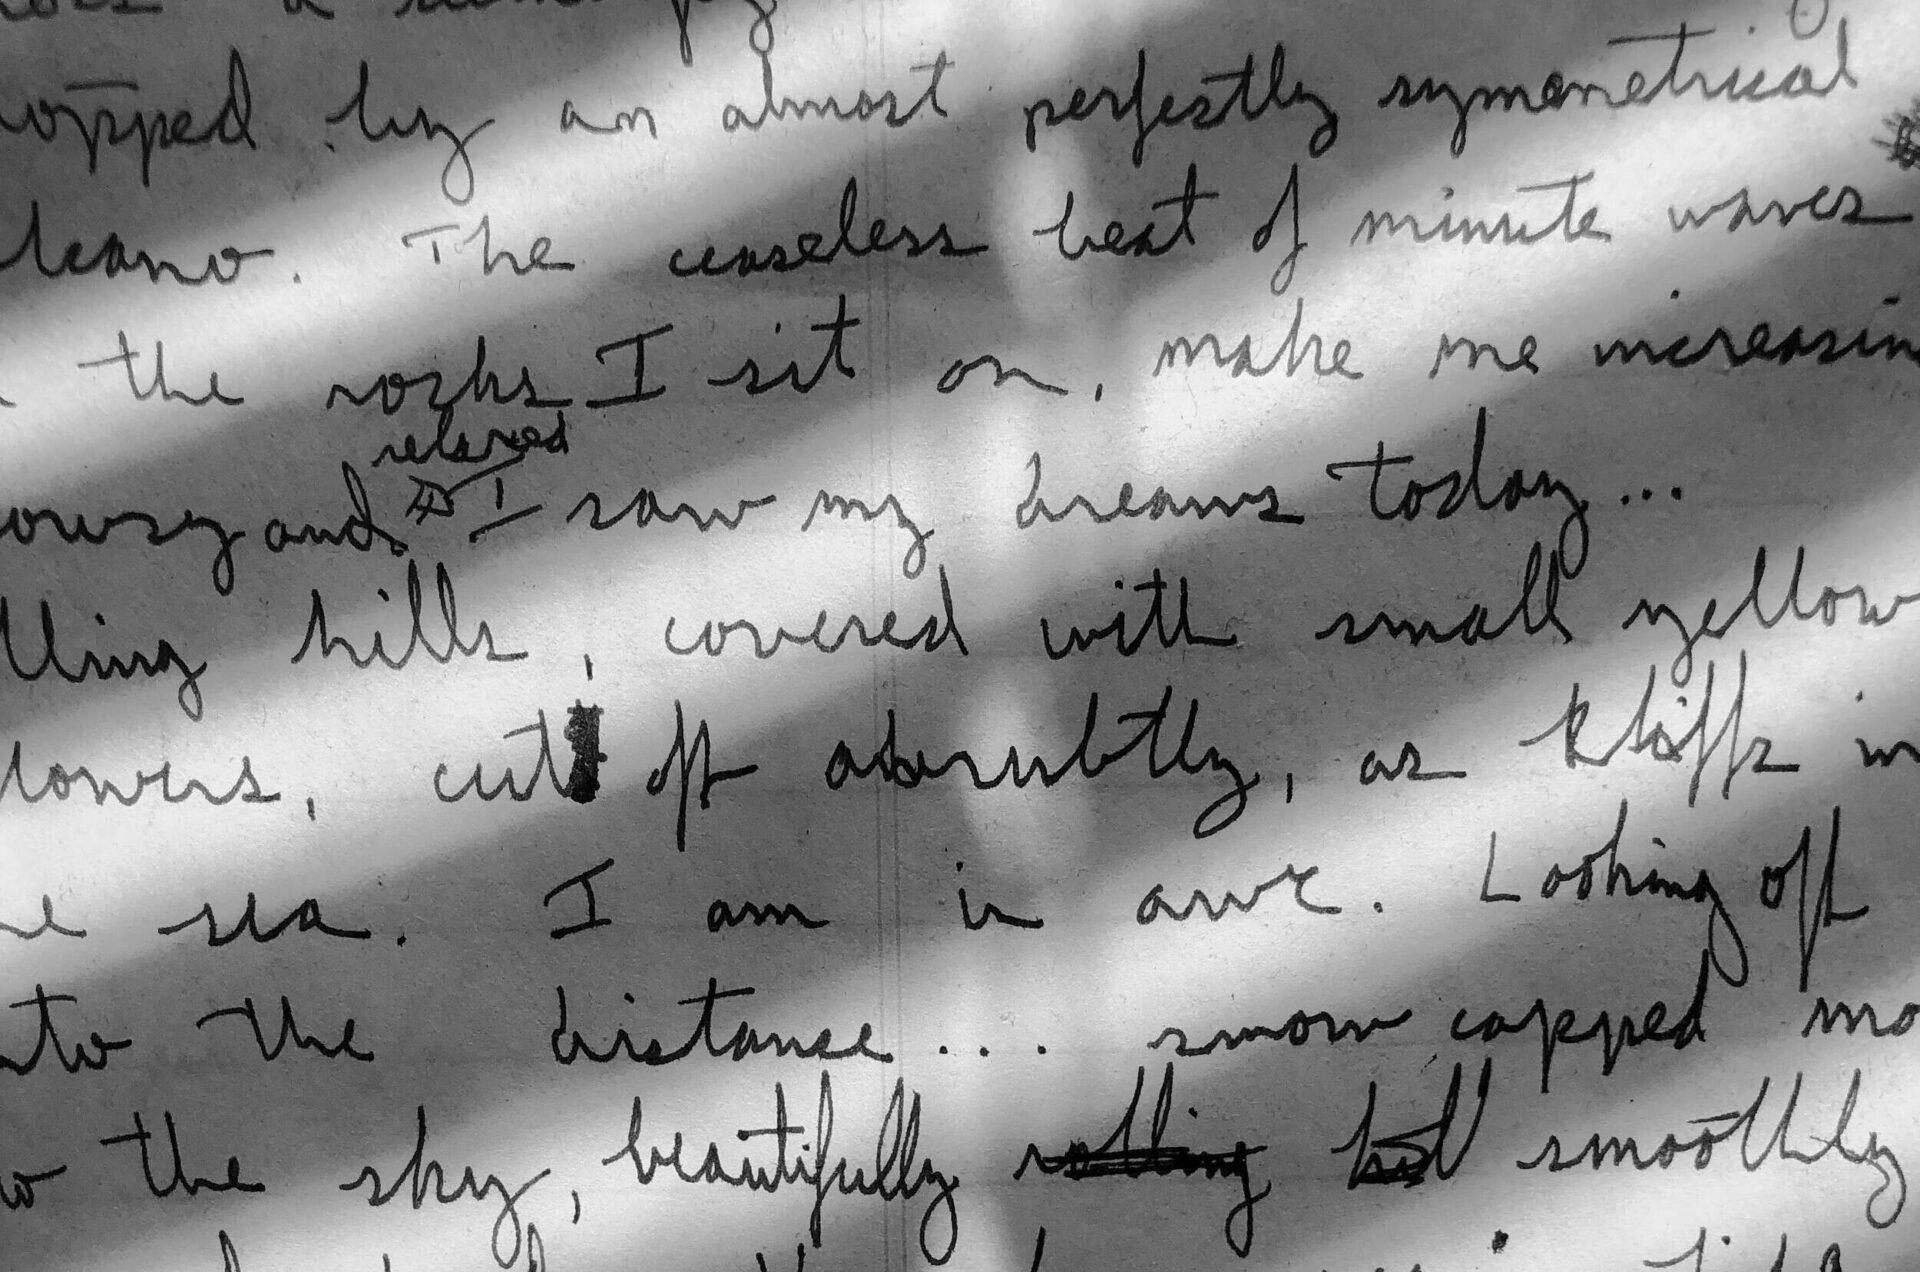 topped by an almost perfectly symmetrical
lcano. The ceaseless beat of minute waves
the rocks I sit on, make me increasin
relaxed
owsy and I saw my dreams today...
lling hills, covered with small yellow
lowers, cut off abrubtly, as kliffs in
he sea. I am in awe. Looking off
nto the distance... snow capped mo
to the sky, beautifully rolling smoothly